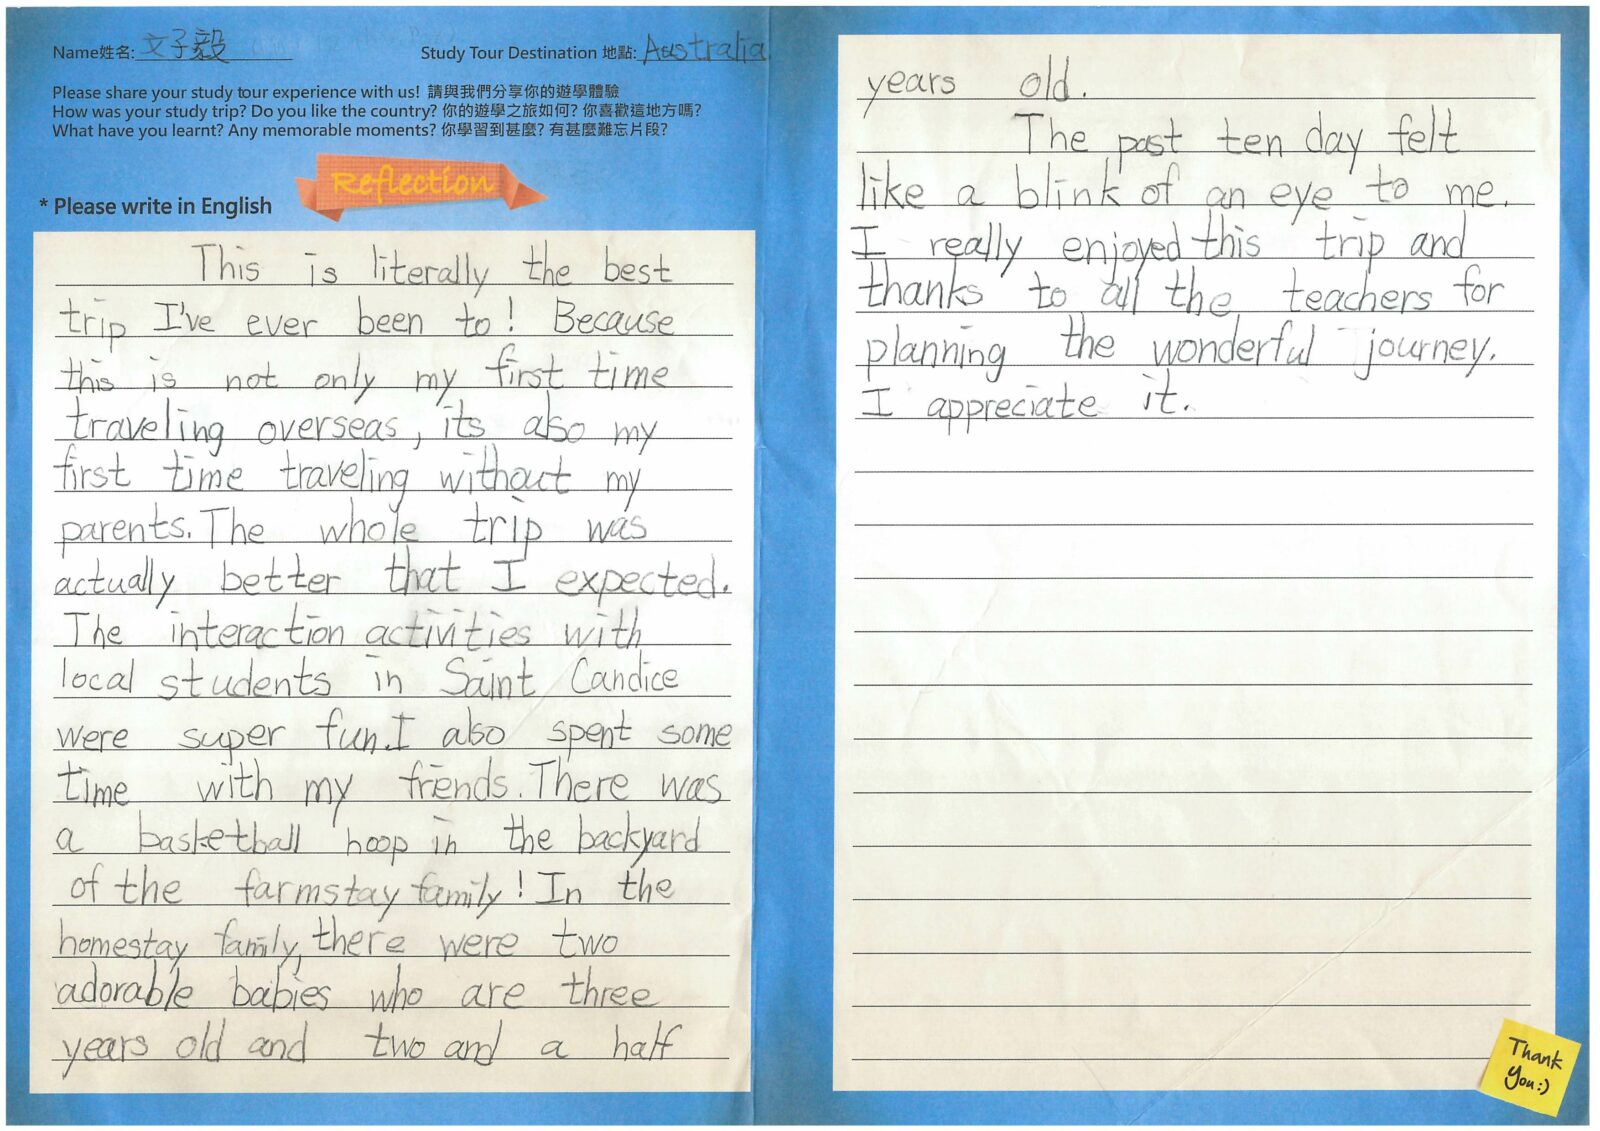 Name姓名: 文子毅
Study Tour Destination 地點: Australia
Please share your study tour experience with us! 請與我們分享你的遊學體驗
How was your study trip? Do you like the country? 你的遊學之旅如何? 你喜歡這地方嗎?
What have you learnt? Any memorable moments? 你學習到甚麼? 有甚麼難忘片段?
Reflection
* Please write in English
This is literally the best
trip I've ever been to! Because
this is not only my first time
traveling overseas, its also my
first time traveling without my
parents. The whole trip was
actually better that I expected.
The interaction activities with
local students in Saint Candice
were super fun. I also spent some
time with my friends. There was
a basketball hoop in the backyard
of the farmstay family! In the
homestay family, there were two
adorable babies who are three
years old and two and a half
years old.
The past ten day felt
like a blink of an eye to me.
I really enjoyed this trip and
thanks to all the teachers for
planning the wonderful journey.
I appreciate it.
Thank
You:)